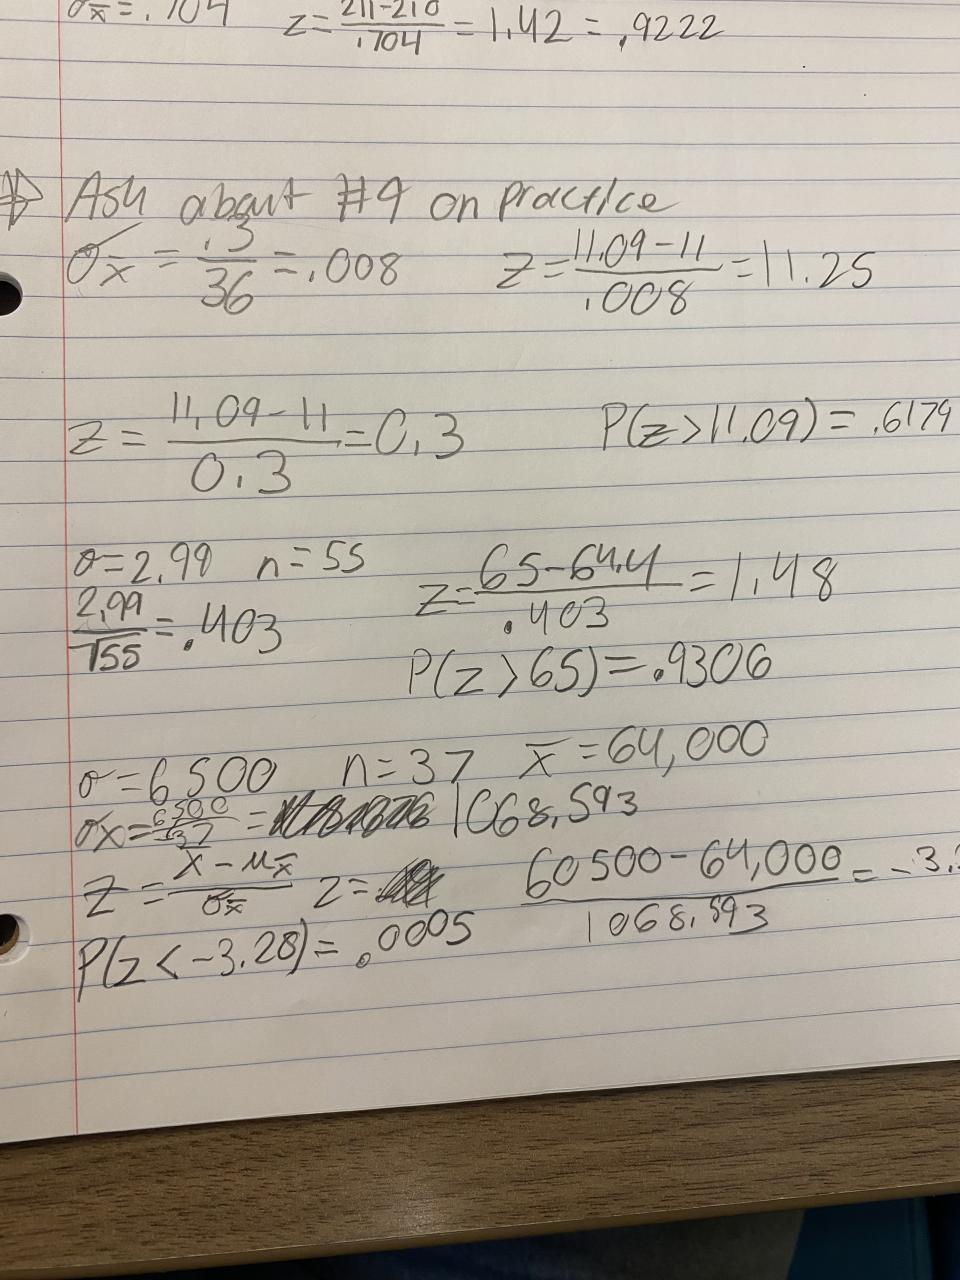 σx̄ = .704 z = 211-210/.704 = 1.42 = .9222
⇒ Ask about #9 on practice
σx̄ = .3/36 = .008 z = 11.09-11/.008 = 11.25
z = 11.09-11/0.3 = 0.3 P(z>11.09) = .6179
σ=2.99 n=55 z = 65-64.4/.403 = 1.48
2.99/√55 = .403
P(z>65) = .9306
σ=6500 n=37 x̄=64,000
σx = 6500/√37 = 1068.593
z = x̄-μx̄/σx̄ z= 60500-64,000/1068.593 = -3.
P(z<-3.28) = .0005